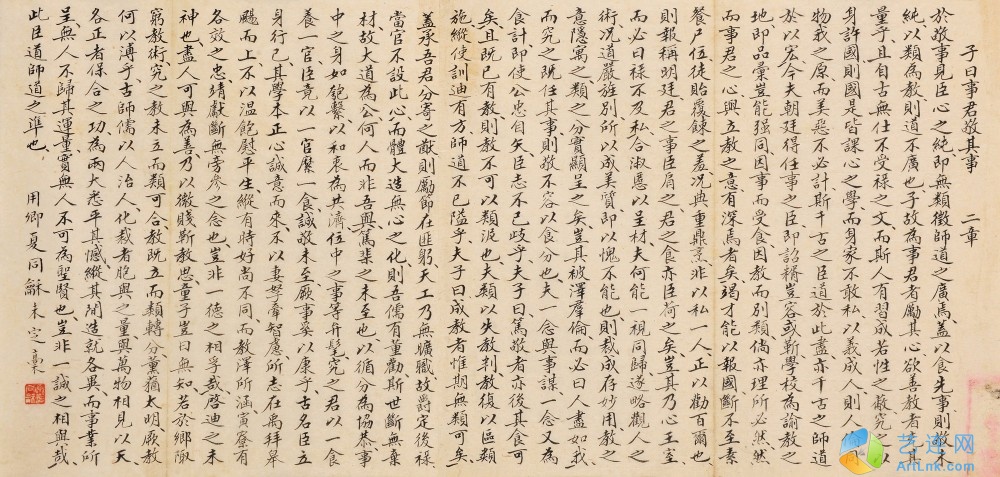 子曰事君敬其事　二章
於敬事見臣心之純即無類徵師道之廣焉蓋以食先事則敬未
純以類為教則道不廣也子故為事君者勵其心欲善教者純其
量乎且自古無仕不受祿之文而斯人有習成若性之蔽究之以
身許國則國是皆課心之學而身家不敢私以義成人則人人同
物我之原而美惡不必計斯千古之臣道於此盡亦千古之師道
於以宏今夫朝廷得任事之臣即詔糈豈容或靳學校為諭教之
地即品彙豈能强同因事而受食因教而別類倘亦理所必然然
而事君之心與立教之意有深焉者矣竭才能以報國斷不至素
餐尸位徒貽覆餗之羞況典重鼎烹非以私一人正以勸百爾也
則報稱明廷君之事臣肩之君之食亦臣荷之矣豈其乃心王室
而必曰祿不及私合淑慝以呈材夫何能一視同歸遂略觀人之
術況道嚴旌別所以成美質即以愧不能也則裁成存妙用教之
意隱寓之類之分實顯呈之矣豈其被澤羣倫而必曰人盡如我
而究之既任其事則敬不容以食分也夫一念與事謀一念又為
食計即使公忠自矢臣志不已歧乎夫子曰篤敬者亦後其食可
矣且既已有教則教不可以類泥也夫類以失教判教復以區類
施縱使訓迪有方師道不已隘乎夫子曰成教者惟期無類可矣
蓋承吾君分寄之猷則勵節在匪躬天工乃無曠職故爵定後祿
當官不設此心而體大造無心之化則吾儒有董勸斯世斷無棄
材故大道為公何人而非吾與篤棐之未至也以循分為協恭事
中之身如匏繫以和衷為共濟位中之事等弁髦究之君以一食
養一官臣竟以一官縻一食誠敬未至厥事奚以康乎古名臣立
身行己其學本正心誠意而來不以妻孥牽智慮所志在禹拜皋
颺而上不以溫飽慰平生縱有時好尚不同而教澤所涵寅寮有
各效之忠靖獻斷無旁參之念也豈非一德之相孚哉啓迪之未
神也盡人可與為善乃以微賤靳教思童子豈曰無知若於鄉陬
窮教術究之教未立而類可合教既立而類轉分薰蕕太明厥教
何以溥乎古師儒以人治人化裁者胞與之量與萬物相見以天
各正者保合之功為兩大悉平其憾縱其間造就各異而事業所
呈無人不歸其運量實無人不可為聖賢也豈非一誠之相與哉
此臣道師道之準也
用卿夏同龢未定稾
艺连网
ArtLnk.com